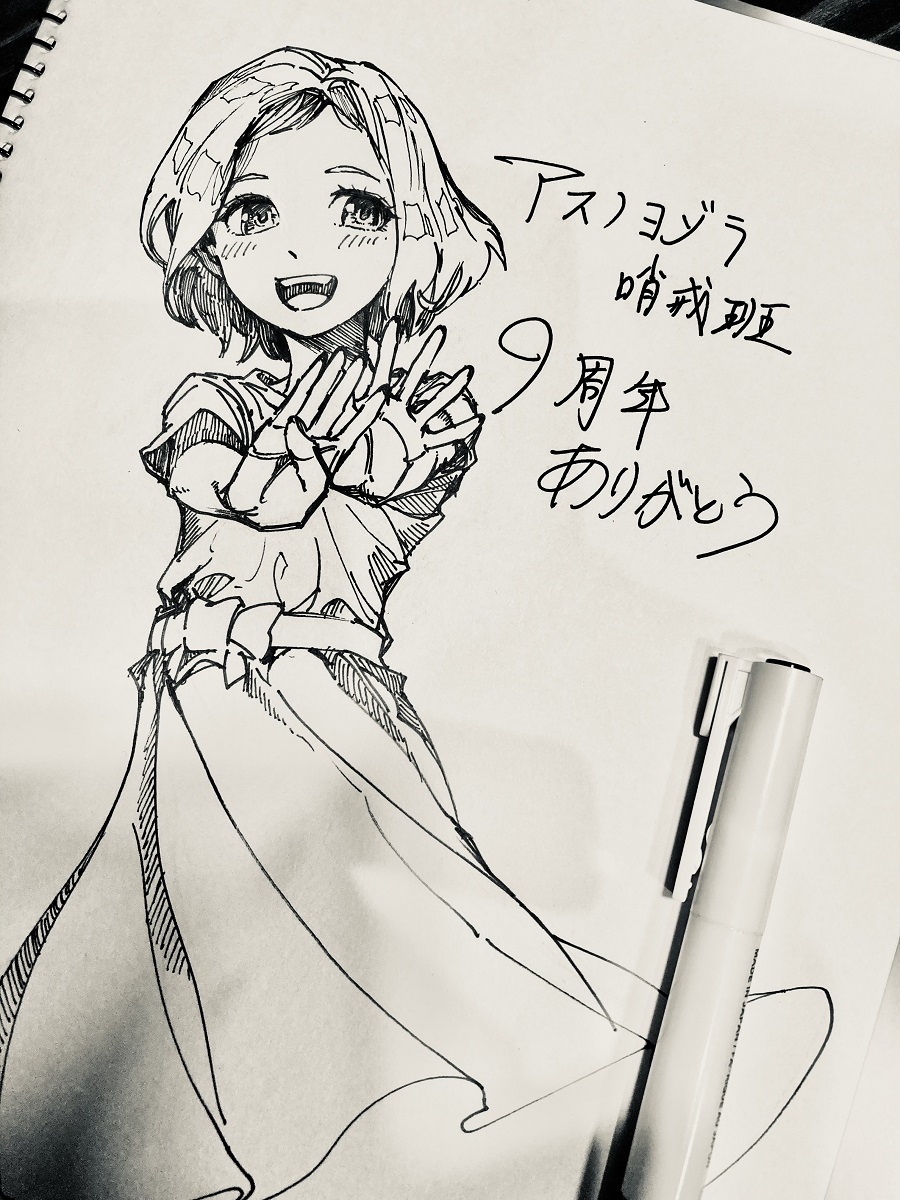 アスノヨゾラ
哨戒班
9周年
ありがとう